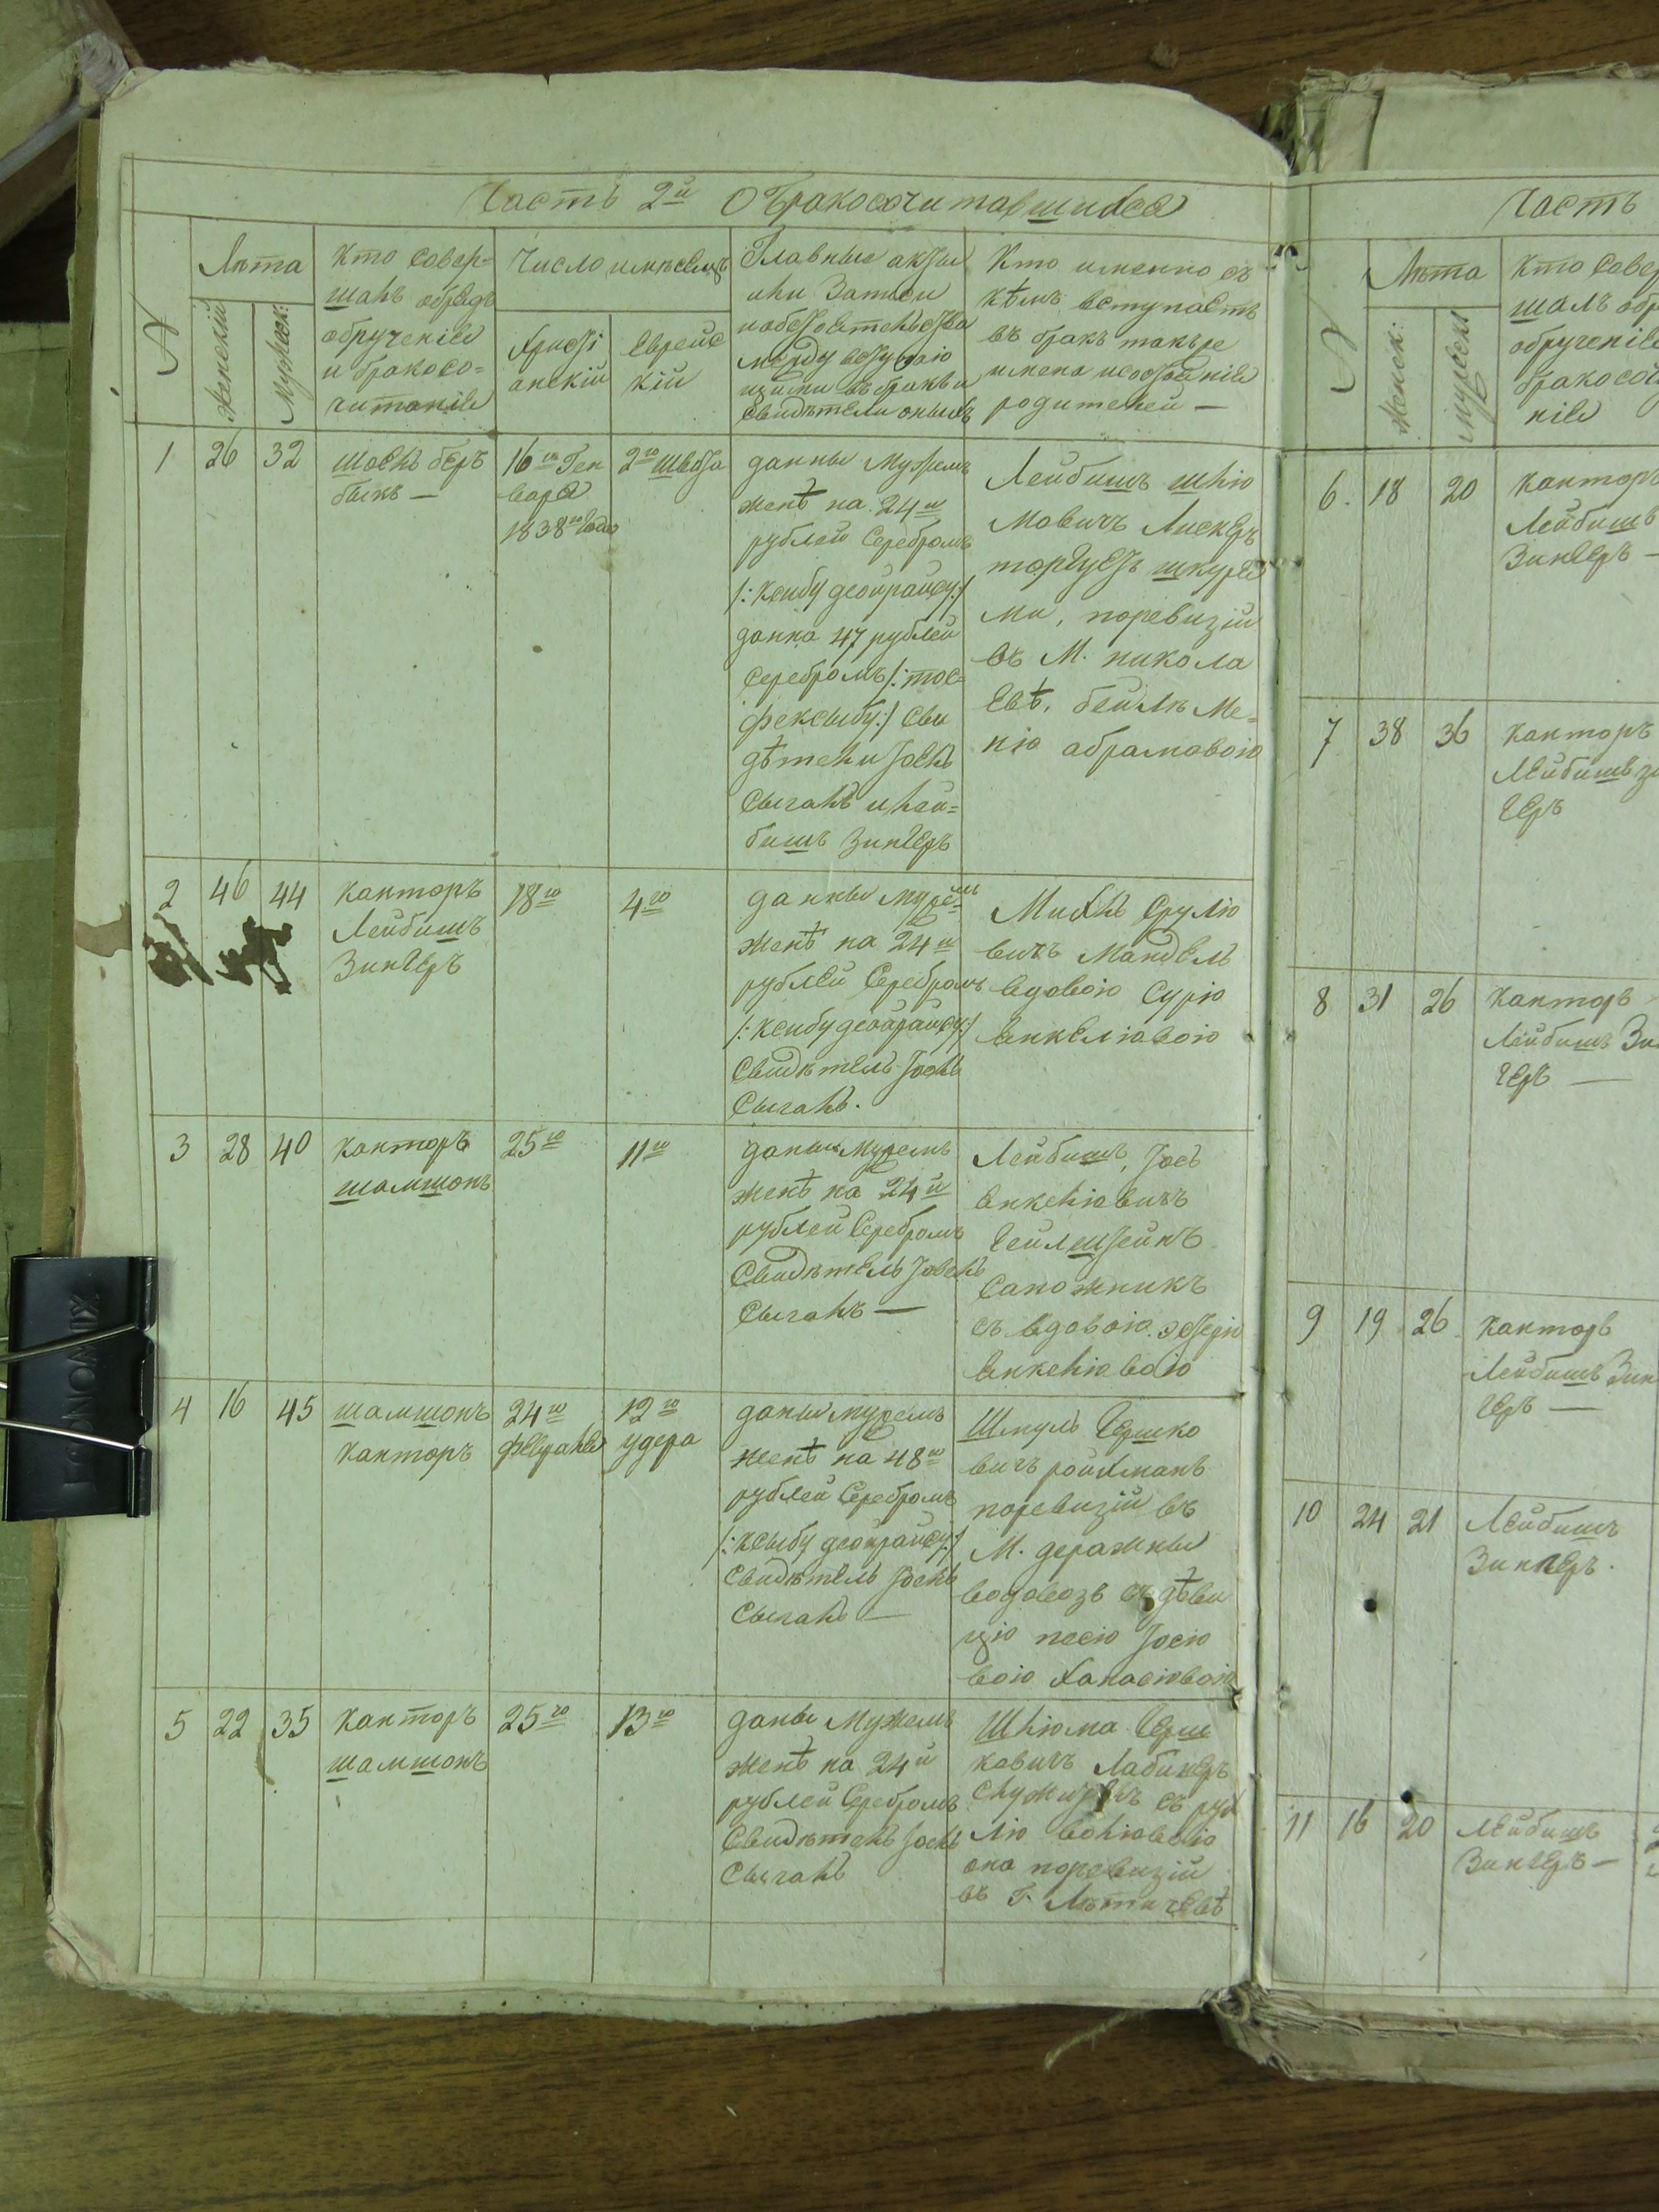 Часть 2й О бракосочитавшихся
№
Лѣта
Женскій
Мужеск:
Кто совер=
шалъ обрядъ
обрученія
и бракосо=
читанія
Число и мѣсецъ
Христі
анскій
Еврейс
кій
Главные акты
или Записи
между вступаю
щими въ бракъ и
свидѣтели оныхъ
Кто именно съ
кѣмъ вступаетъ
въ бракъ такъже
имена и состояніе
родителей —
1
26
32
шоелъ беръ
быкъ —
16го Ген
варя
1838го Года
2го швота
данны мужемъ
женѣ на 24и
рублей серебромъ
/: ксибу деойрайсу:/
данна 47 рублей
серебромъ /: тос=
фексыбу:/ сви
дѣтели Іосль
Сыгалъ и лей=
бишъ Зингеръ
Лейбишъ шлю
мовичъ Лискеръ
торгуетъ шкура
ми, поревизіи
въ М. никола
евѣ, бейлъ Ме=
нію абрамовою
2
46
44
Канторъ
Лейбишъ
Зингеръ
18го
4го
данны мужемъ
женѣ на 24и
рублей Серебромъ
/: ксибу деойрайсу:/
Свидѣтель Іосль
Сыгалъ.
Михль Срулю
вичъ Мандель
вдовою Сурію
Янкелювою
3
28
40
Канторъ
шамшонъ
25го
11го
даны мужемъ
женѣ на 24й
рублей Серебромъ
Свидѣтель Іовсль
Сыгалъ —
Лейбишъ, Іосъ
Янкелювичъ
Сапожникъ
съ вдовою эстерію
Янкелювою
4
16
45
шамшонъ
Канторъ
24го
февраля
12го
удера
даны мужемъ
женѣ на 48го
рублей Серебромъ
/: ксыбу деойрайсу:/
Свидѣтель Іосль
Сыгалъ —
Шмуль Гершко
вичъ ройхманъ
поревизіи въ
М. деражны
водовозъ съ дѣви
цію песію Іосію
вою Ханасювою
5
22
35
Канторъ
шамшонъ
25го
13го
даны Мужемъ
женѣ на 24й
рублей Серебромъ
Свидѣтель Іосль
Сыгалъ
Шлюма Герш
ковичъ Лабинеръ
служитель съ рух
лю волювою
она поревизіи
въ Г. Лѣтичевѣ
Часть
№
Лѣта
Женск:
мужеск
Кто совер
шалъ обр
обрученіе
бракосоч
ніе
6.
18
20
Канторъ
Лейбишъ
Зингеръ —
7
38
36
Канторъ
Лейбишъ зи
геръ
8
31
26
Канторъ
Лейбишъ Зи
геръ —
9
19
26
Канторъ
Лейбишъ Зин
геръ —
10
24
21
Лейбишъ
Зингеръ.
11
16
20
Лейбишъ
Зингеръ —